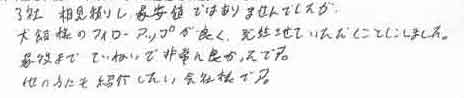 3社 相見積りし、最安値ではありませんでしたが、
犬飼様のフォローアップが良く、発注させていただくことにしました。
最後まで ていねいで非常に良かったです。
他の方にも紹介したい会社様です。